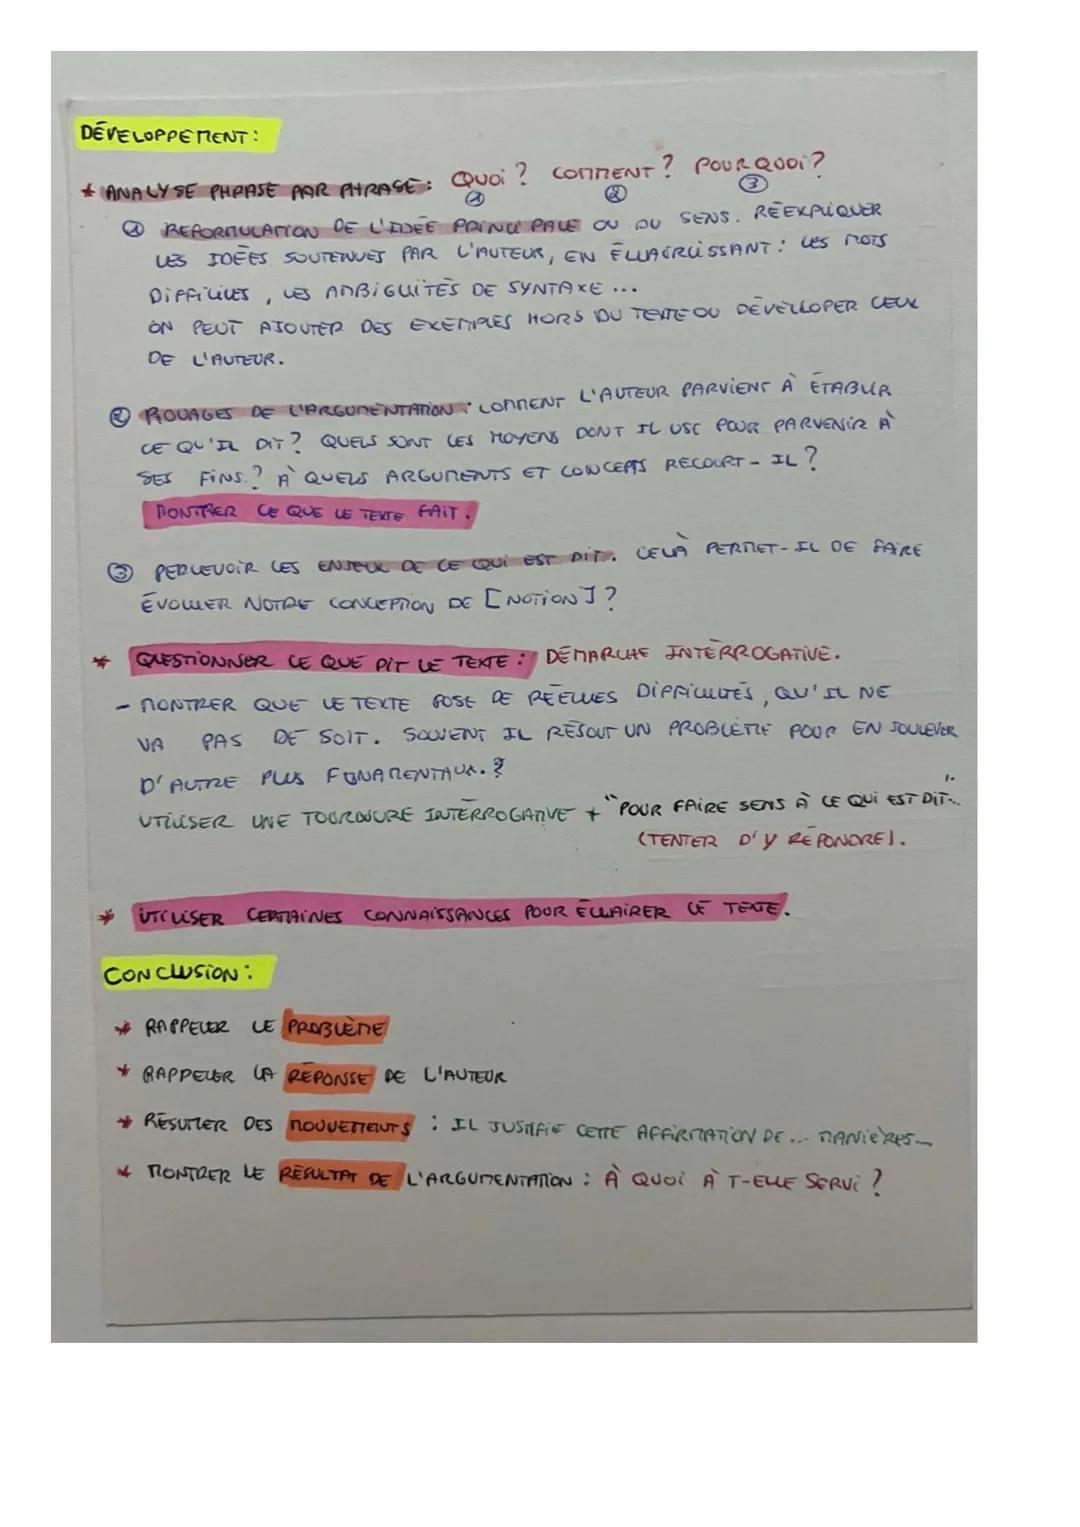 DÉVELOPPEMENT :
* ANALYSE PHRASE PAR PHRASE : QUOI ? COMMENT ? POURQUOI ?
① ② ③
① REFORMULATION DE L'IDÉE PRINCIPALE OU DU SENS. RÉEXPLIQUER
LES IDÉES SOUTENUES PAR L'AUTEUR, EN ÉCLAIRCISSANT : LES MOTS
DIFFICILES, LES AMBIGUITÉS DE SYNTAXE ...
ON PEUT AJOUTER DES EXEMPLES HORS DU TEXTE OU DÉVELLOPER CEUX
DE L'AUTEUR.
② ROUAGES DE L'ARGUMENTATION : COMMENT L'AUTEUR PARVIENT À ÉTABLIR
CE QU'IL DIT ? QUELS SONT LES MOYENS DONT IL USE POUR PARVENIR À
SES FINS ? À QUELS ARGUMENTS ET CONCEPTS RECOURT-IL ?
MONTRER CE QUE LE TEXTE FAIT.
③ PERCEVOIR LES ENJEUX DE CE QUI EST DIT. CELÀ PERMET-IL DE FAIRE
ÉVOLUER NOTRE CONCEPTION DE [NOTION] ?
* QUESTIONNER CE QUE DIT LE TEXTE : DÉMARCHE INTERROGATIVE.
- MONTRER QUE LE TEXTE POSE DE RÉELLES DIFFICULTÉS, QU'IL NE
VA PAS DE SOIT. SOUVENT IL RÉSOUT UN PROBLÈME POUR EN SOULEVER
D'AUTRE PLUS FONAMENTAUX. ?
UTILISER UNE TOURNURE INTERROGATIVE + "POUR FAIRE SENS À CE QUI EST DIT..."
(TENTER D'Y RÉPONDRE).
* UTILISER CERTAINES CONNAISSANCES POUR ÉCLAIRER LE TEXTE.
CONCLUSION :
* RAPPELER LE PROBLÈME
* RAPPELER LA RÉPONSE DE L'AUTEUR
* RÉSUMER DES MOUVEMENTS : IL JUSTIFIE CETTE AFFIRMATION DE ... MANIÈRES...
* MONTRER LE RÉSULTAT DE L'ARGUMENTATION : À QUOI À T-ELLE SERVI ?